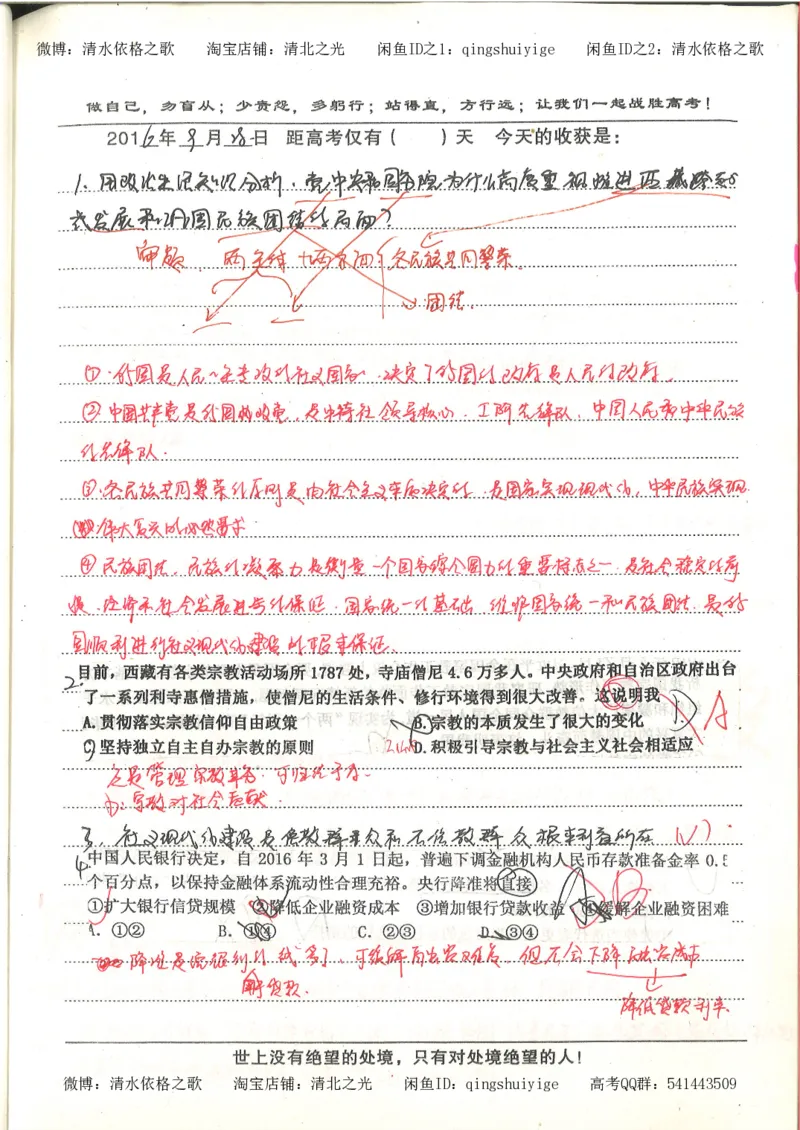 微博：清水依格之歌 淘宝店铺：清北之光 闲鱼ID之1：qingshuiyige 闲鱼ID之2：清水依格之歌
做自己，勿盲从；少责怨，多躬行；站得直，方行远；让我们一起战胜高考！
2016年3月28日 距高考仅有（ ）天 今天的收获是：
1、用政治生活知识分析，党中央和国务院为什么高度重视推进西藏跨越
式发展和巩固民族团结的局面？
审题 各民族共同繁荣
团结
①我国是人民民主专政的社会主义国家，决定了我国的政府是人民的政府。
②中国共产党是我国的执政党，是中特社领导核心，工阶先锋队，中国人民和中华民族
的先锋队。
③各民族共同繁荣的原则是由社会主义本质决定的，是国家实现现代化，中华民族实现
伟大复兴的必然要求
④民族团结，民族的凝聚力是衡量一个国家综合国力的重要标志之一，是社会稳定的前
提，经济和社会发展进步的保证，国家统一的基础，维护国家统一和民族团结，是我
国顺利进行社义现代化建设的根本保证。
2. 目前，西藏有各类宗教活动场所1787处，寺庙僧尼4.6万多人。中央政府和自治区政府出台
了一系列利寺惠僧措施，使僧尼的生活条件、修行环境得到很大改善。这说明我
A.贯彻落实宗教信仰自由政策 B.宗教的本质发生了很大的变化 A
C)坚持独立自主自办宗教的原则 D.积极引导宗教与社会主义社会相适应
这是管理宗教事务
D：宗教对社会贡献
3、社义现代化建设是信教群众和不信教群众根本利益所在 (√)
4. 中国人民银行决定，自2016年3月1日起，普遍下调金融机构人民币存款准备金率0.5
个百分点，以保持金融体系流动性合理充裕。央行降准将直接 B
①扩大银行信贷规模 ②降低企业融资成本 ③增加银行贷款收益 ④缓解企业融资困难
A. ①② B. ①④ C. ②③ D. ③④
降准是 钱多了，可缓解融资难，但不会下降融资成本
贷款.
降低贷款利率
世上没有绝望的处境，只有对处境绝望的人！
微博：清水依格之歌 淘宝店铺：清北之光 闲鱼ID：qingshuiyige 高考QQ群：541443509